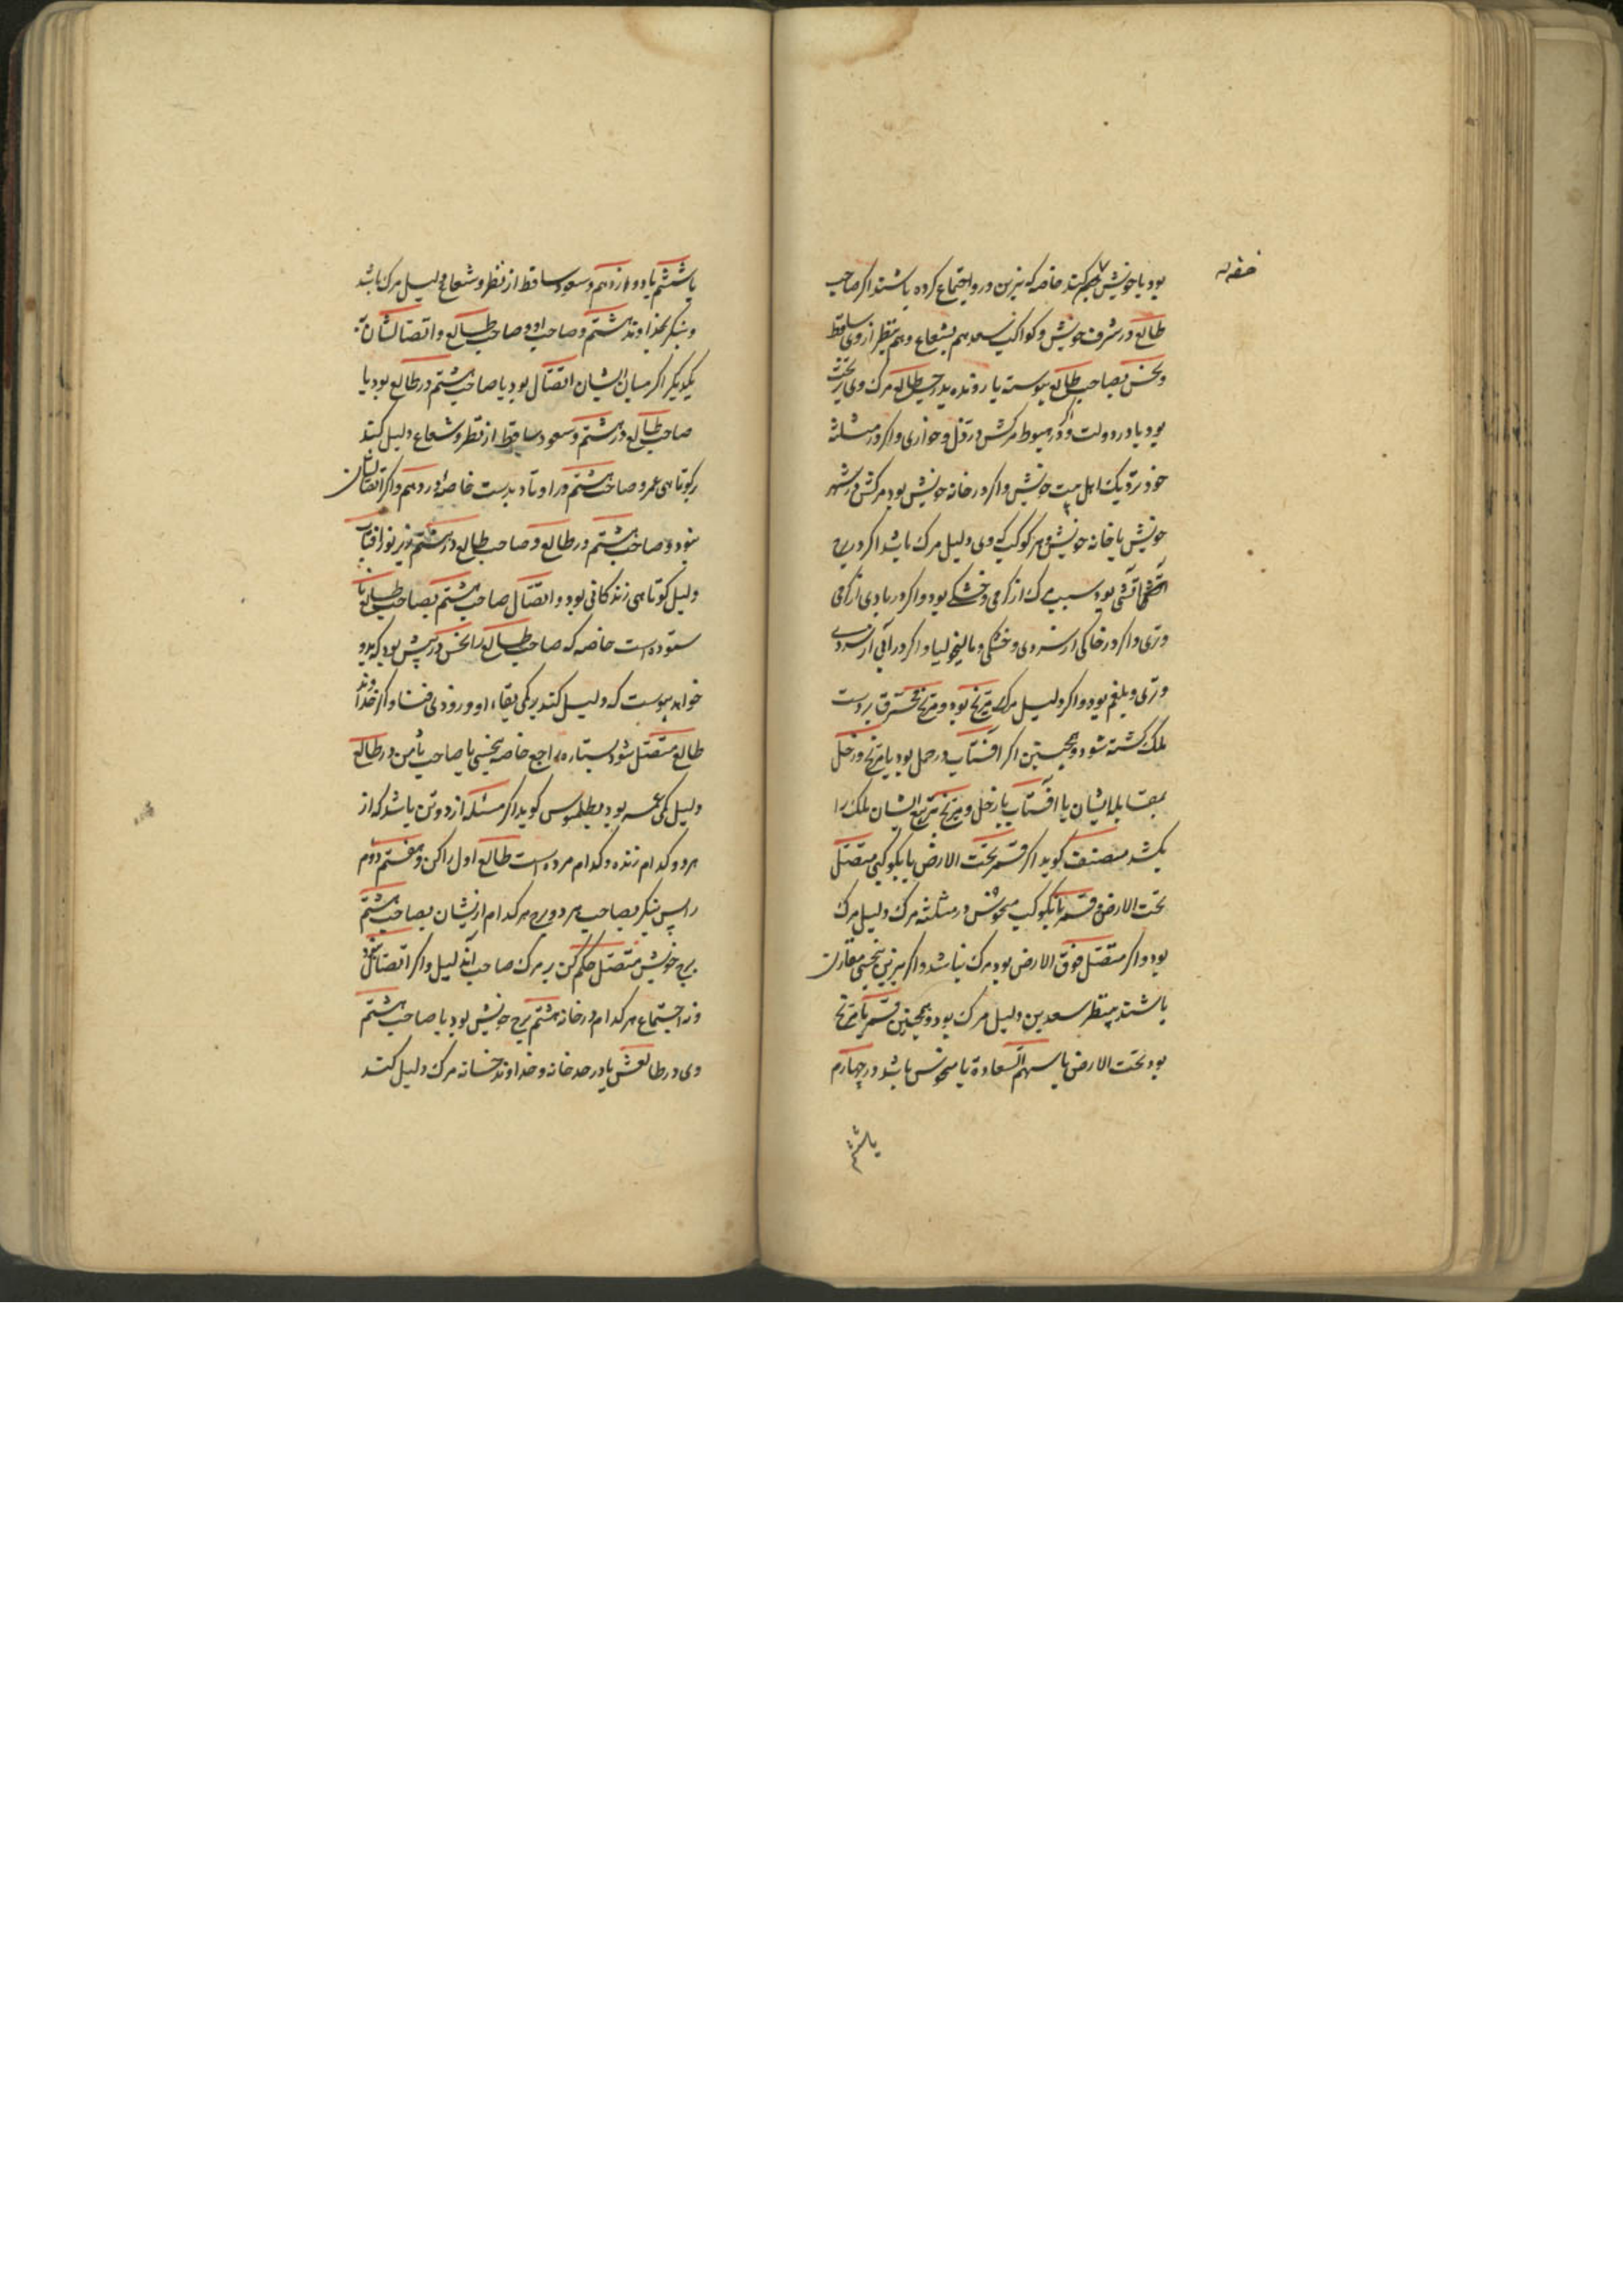 بود یا خویش حکم کند خاصه که نیرین درو اجتماع کرده باشند اکر صاحب
طالع در شرف خویش و کواکب سعد هم بشعاع و هم بنظر از وی ساقط
و نحس بصاحب طالع پیوسته یا رونده بدرجه طالع مرک وی بر تخت
بود یا در دولت و اکر در هبوط مرکش در ذل و خواری و اکر در مثلثه
خود نزدیک اهل بیت خویش و اکر در خانه خویش بود مرکش در شهر
خویش یا خانه خویش و هر کوکب که وی دلیل مرک باشد اکر در برج
آتشی بود سبب مرک از کرمی و خشکی بود و اکر در بادی از کرمی
و تری و اکر در خاکی از سردی و خشکی و مالیخولیا و اکر در آبی از سردی
و تری و بلغم بود و اکر دلیل مرک مریخ بود و مریخ محترق بر دست
ملک کشته شود و همچنین اکر آفتاب در حمل بود یا مریخ و زحل
بمقابله ایشان یا آفتاب با زحل و مریخ بتربیع ایشان ملک را
بکشد مصنف کوید اکر قمر تحت الارض با کوکبی متصل
تحت الارض و قمر با کوکب منحوس در مثلثه مرک دلیل مرک
بود و اکر متصل فوق الارض بود مرک نباشد و اکر نیرین بنحسی مقارن
باشند بی نظر سعدین دلیل مرک بود و همچنین قمر با مریخ
بود تحت الارض یا سهم السعادة یا منحوس باشد در چهارم
یا ششم
یا ششم یا دوازدهم و سعود ساقط از نظر و شعاع دلیل مرک باشد
و بنکر بخداوند هشتم و صاحب او و صاحب طالع و اتصالشان به
یکدیکر اکر میان ایشان اتصال بود یا صاحب هشتم در طالع بود یا
صاحب طالع در هشتم و سعود ساقط از نظر و شعاع دلیل کند
بر کوتاهی عمر و صاحب هشتم در اوتاد بدست خاصه در دهم و اکر اتصالشان
نبود و صاحب هشتم در طالع و صاحب طالع در هشتم زیر نور آفتاب
دلیل کوتاهی زندکانی بود و اتصال صاحب هشتم بصاحب طالع نا
ستوده است خاصه که صاحب طالع را نحس در پیش بود که بدو
خواهد پیوست که دلیل کند بر کمی بقاء او و زودی فنا و اکر خداوند
طالع متصل شود بستاره راجع خاصه بنحسی یا صاحب ثامن در طالع
دلیل کمی عمر بود بطلمیوس کوید اکر مسئله از دو تن باشد که از
هر دو کدام زنده و کدام مرده است طالع اول را کن و هفتم دوم
را پس بنکر بصاحب هر دو برج هر کدام از یشان بصاحب هشتم
برج خویش متصل حکم کن بر مرک صاحب آن دلیل و اکر اتصال نبود
و نه اجتماع هر کدام در خانه هشتم برج خویش بود یا صاحب هشتم
وی در طالعش یا در حد خانه و خداوند خسانه مرک دلیل کند